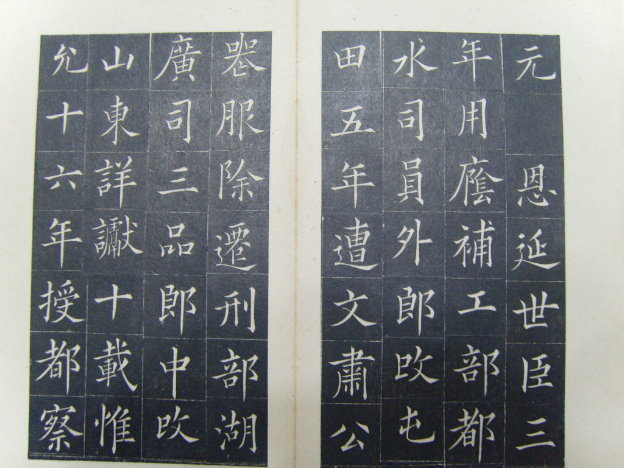 元 恩延世臣三
年用廕補工部都
水司員外郎改屯
田五年遭文肅公
喪服除遷刑部湖
廣司三品郎中改
山東詳讞十載惟
允十六年授都察